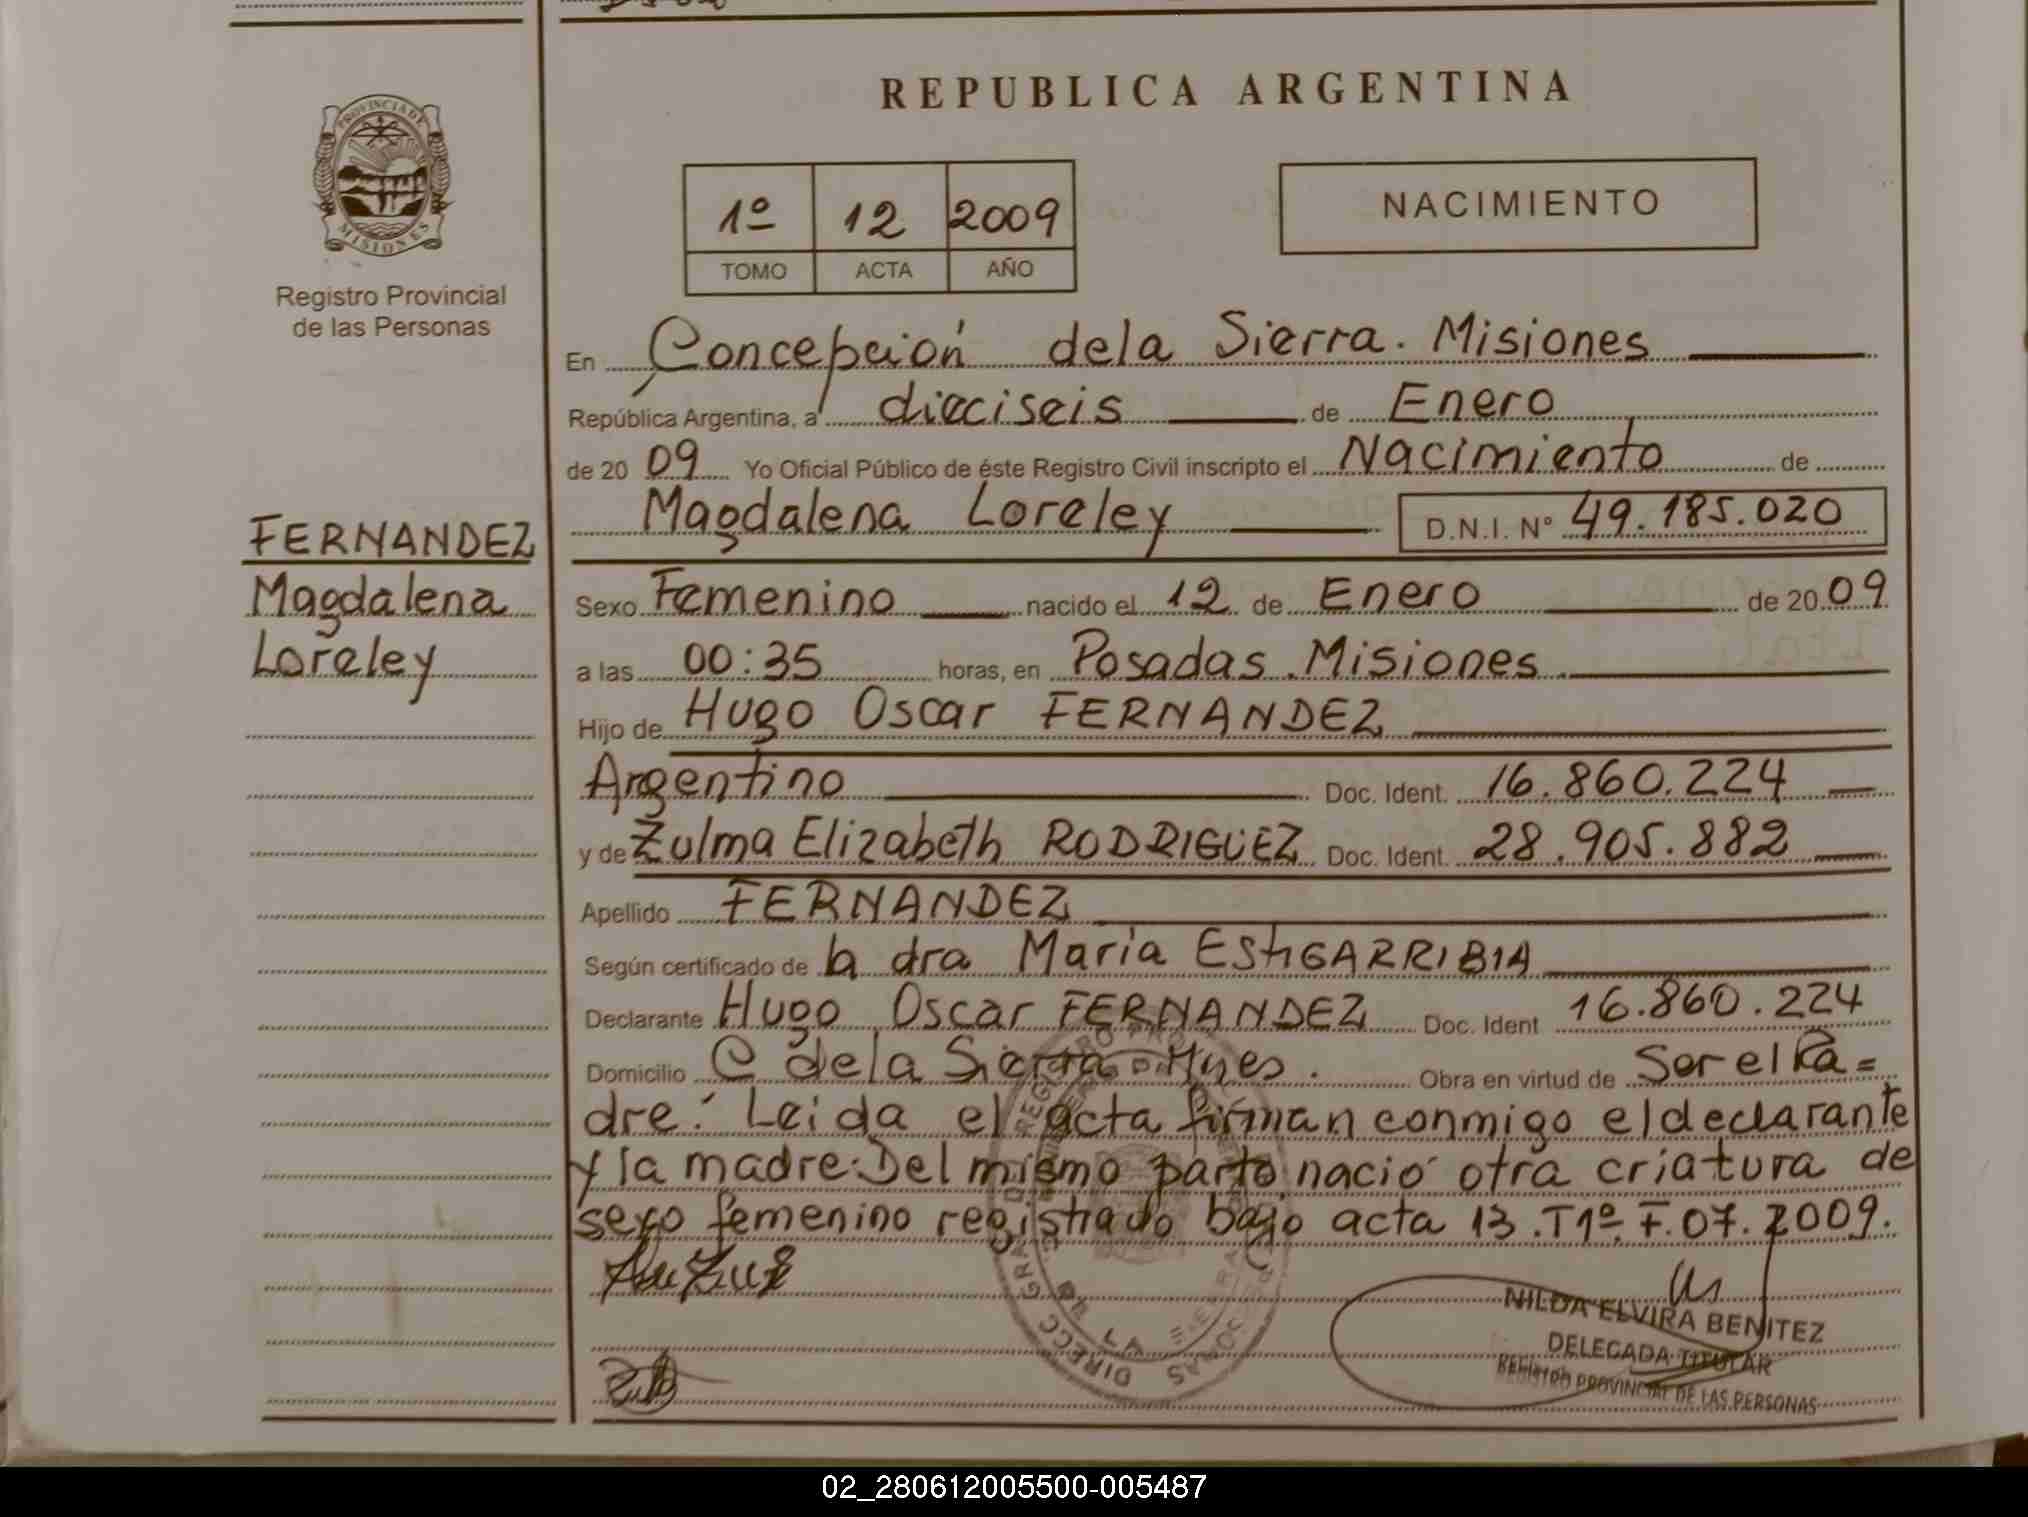 REPUBLICA ARGENTINA
PROVINCIA DE MISIONES
Registro Provincial
de las Personas
1º 12 2009
TOMO ACTA AÑO
NACIMIENTO
En Concepción dela Sierra. Misiones
República Argentina, a dieciseis de Enero
de 20 09 Yo Oficial Público de éste Registro Civil inscripto el Nacimiento de
Magdalena Loreley D.N.I. Nº 49.185.020
FERNANDEZ
Magdalena
Loreley
Sexo Femenino nacido el 12 de Enero de 20 09
a las 00:35 horas, en Posadas. Misiones
Hijo de Hugo Oscar FERNANDEZ
Argentino Doc. Ident. 16.860.224
y de Zulma Elizabeth RODRIGUEZ Doc. Ident. 28.905.882
Apellido FERNANDEZ
Según certificado de la dra Maria EStiGARRIBIA
Declarante Hugo Oscar FERNANDEZ Doc. Ident 16.860.224
Domicilio C dela Sierra Mnes. Obra en virtud de Ser el Pa=
dre. Leida el acta firman conmigo el declarante
y la madre. Del mismo parto nació otra criatura de
sexo femenino registrado bajo acta 13. T1º. F.07. 2009.
NILDA ELVIRA BENITEZ
DELEGADA TITULAR
REGISTRO PROVINCIAL DE LAS PERSONAS
02_280612005500-005487